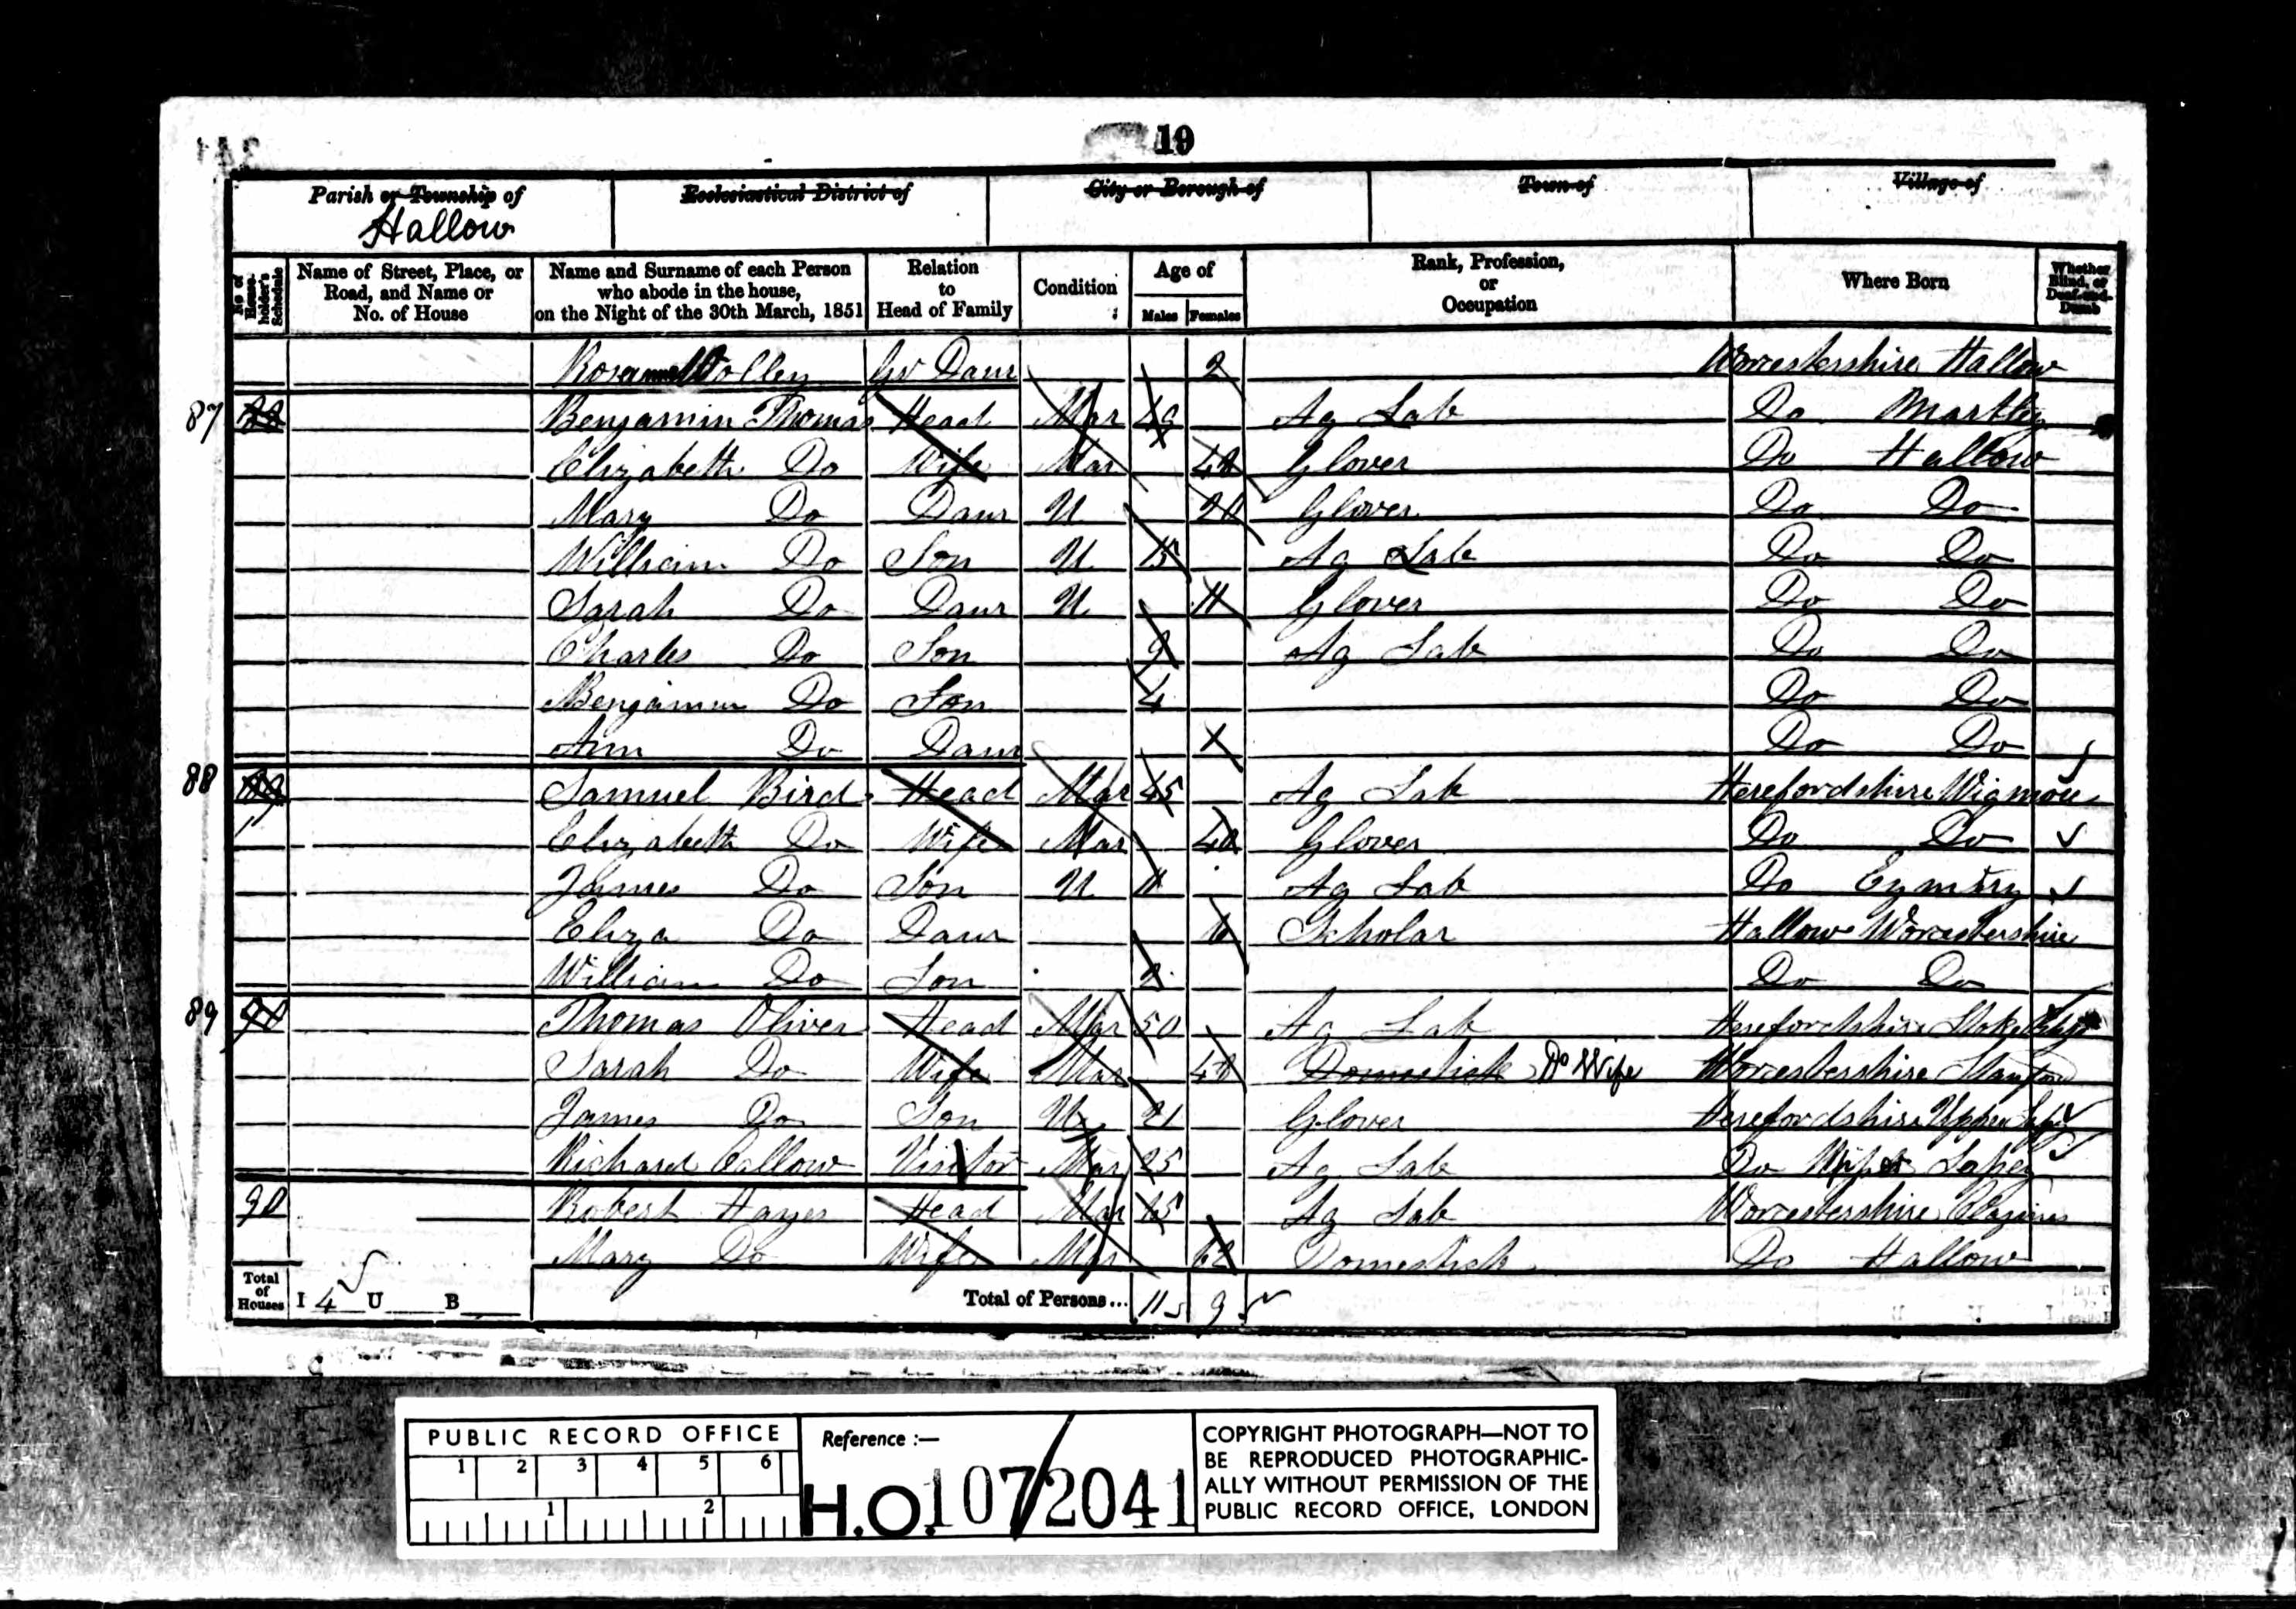 19
Parish or Township of Ecclesiastical District of City or Borough of Town of Village of
Hallow
No. of House-holder's Schedule
Name of Street, Place, or Road, and Name or No. of House
Name and Surname of each Person who abode in the house, on the Night of the 30th March, 1851
Relation to Head of Family
Condition
Age of
Males Females
Rank, Profession, or Occupation
Where Born
Whether Blind, or Deaf-and-Dumb
Gr Daur 2 Worcestershire Hallow
87 Benjamin Thomas Head Mar 49 Ag Lab Do Martley
Elizabeth Do Wife Mar Glover Do Hallow
Mary Do Daur U Glover Do Do
William Do Son U 15 Ag Lab Do Do
Sarah Do Daur U 11 Glover Do Do
Charles Do Son 9 Ag Lab Do Do
Benjamin Do Son 4 Do Do
Ann Do Daur 1 Do Do
88 Samuel Bird Head Mar 45 Ag Lab Herefordshire Wigmore
Elizabeth Do Wife Mar Glover Do Do
James Do Son U 11 Ag Lab Do
Eliza Do Daur 6 Scholar Hallow Worcestershire
William Do Son 2 Do Do
89 Thomas Oliver Head Mar 50 Ag Lab Herefordshire Stoke
Sarah Do Wife Mar 48 Domestick Do Wife Worcestershire
James Do Son U 21 Glover Herefordshire Upper
Richard Callow Visitor Mar 25 Ag Lab Do Upper Sapey
90 Robert Hayes Head Mar 65 Ag Lab Worcestershire Claines
Mary Do Wife Mar 62 Domestick Do Hallow
Total of Houses I 4 U B Total of Persons... 11 9
PUBLIC RECORD OFFICE
1 2 3 4 5 6
1 2
Reference :—
H.O.107/2041
COPYRIGHT PHOTOGRAPH—NOT TO
BE REPRODUCED PHOTOGRAPHIC-
ALLY WITHOUT PERMISSION OF THE
PUBLIC RECORD OFFICE, LONDON